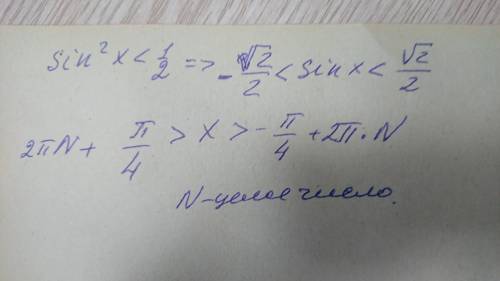 sin² x < 1/2 => -√2/2 < sin x < √2/2
2πN + π/4 > x > -π/4 + 2π·N
N-целое число.